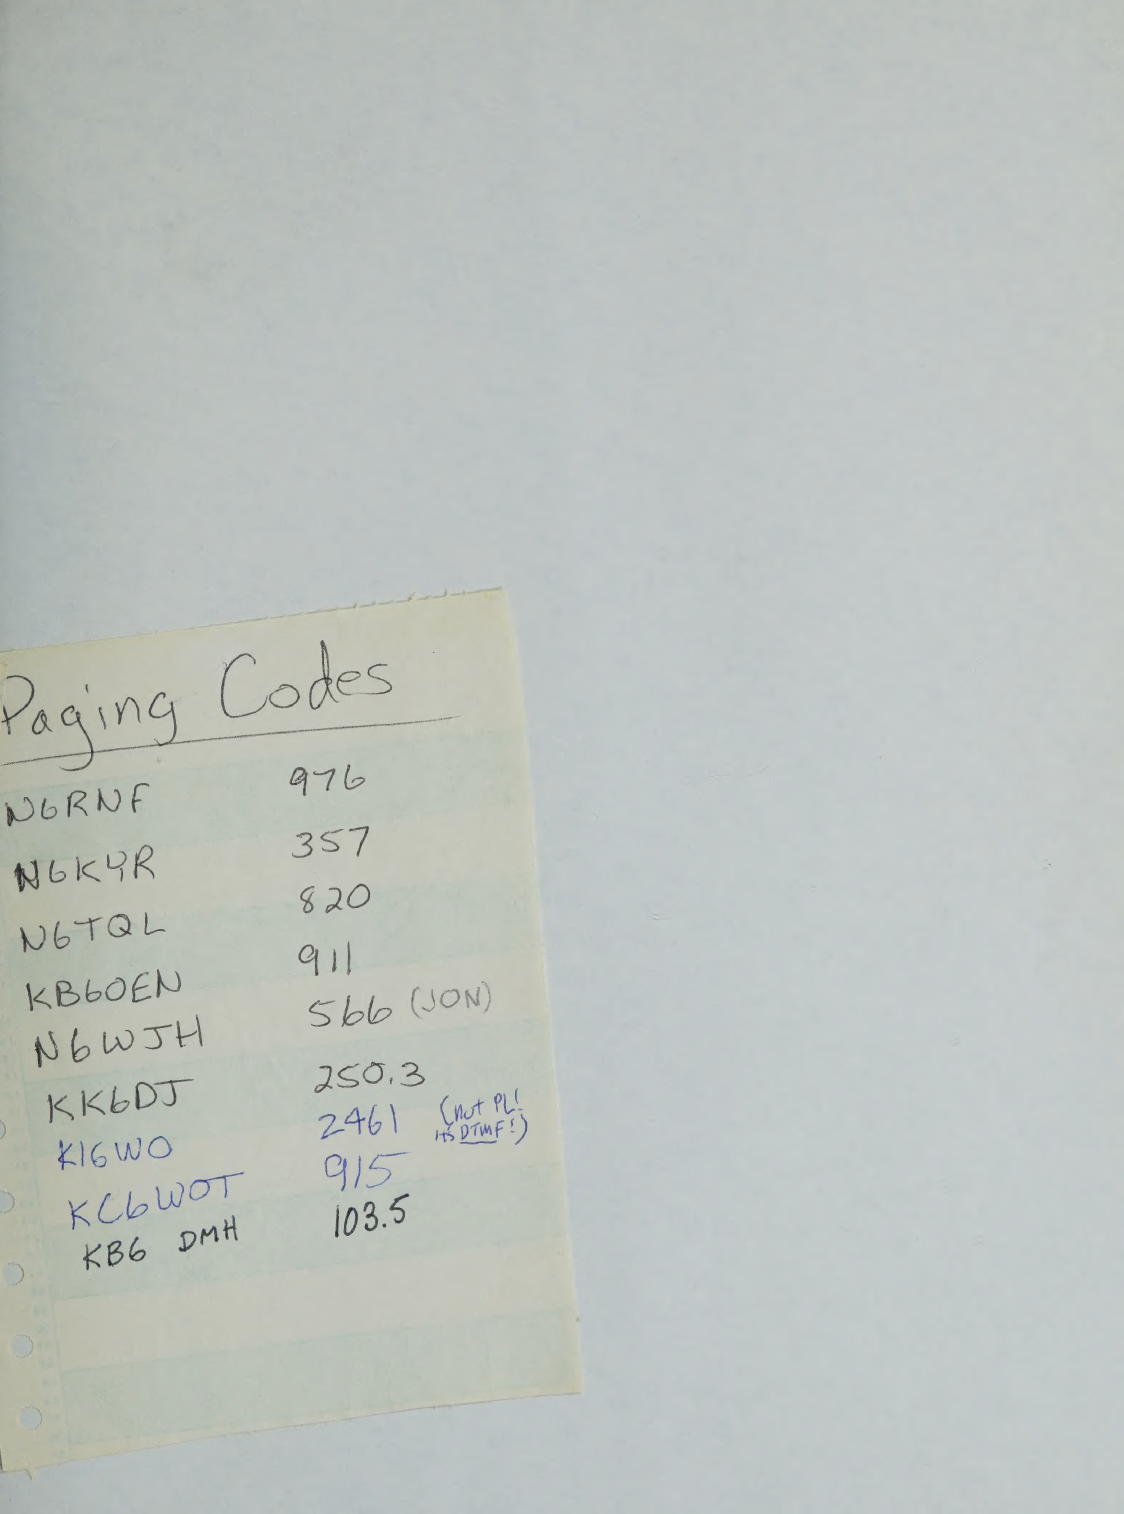 Paging Codes
N6RNF 976
N6KYR 357
N6TQL 820
KB6OEN 911
N6WJH 566 (JON)
KK6DJ 250.3
KI6WO 2461 (not PL! its DTMF!)
KC6WOT 915
KB6 DMH 103.5